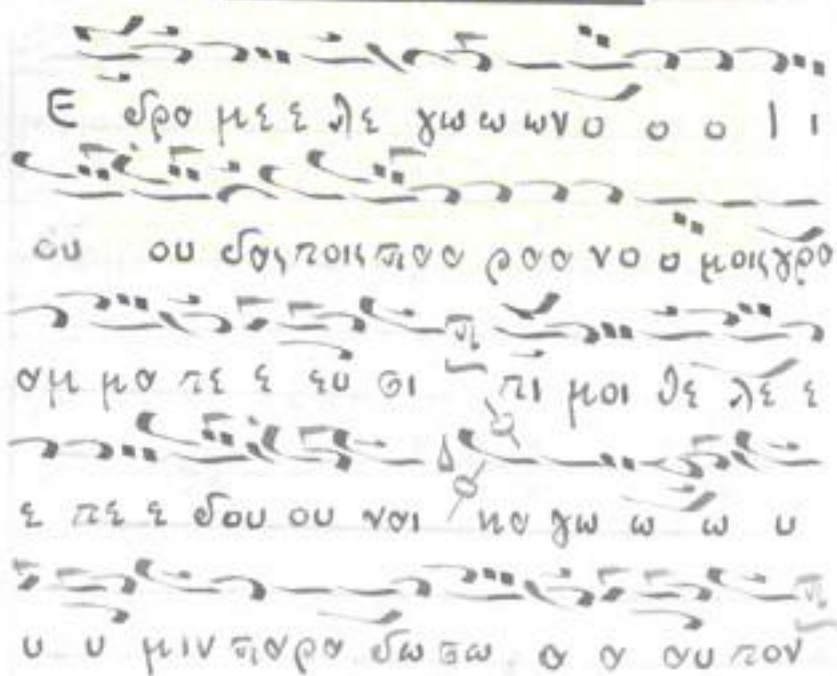 Ε δρα με ε λε γω ω ων ο ο ο Ι ι
ου ου δας τοις πα α ρα α νο ο μοις γρα
αμ μα τε ε ευ σι τι μοι θε λε ε
ε τε ε δου ου ναι κα γω ω ω υ
υ υ μιν πα ρα δω σω α α αυ τον